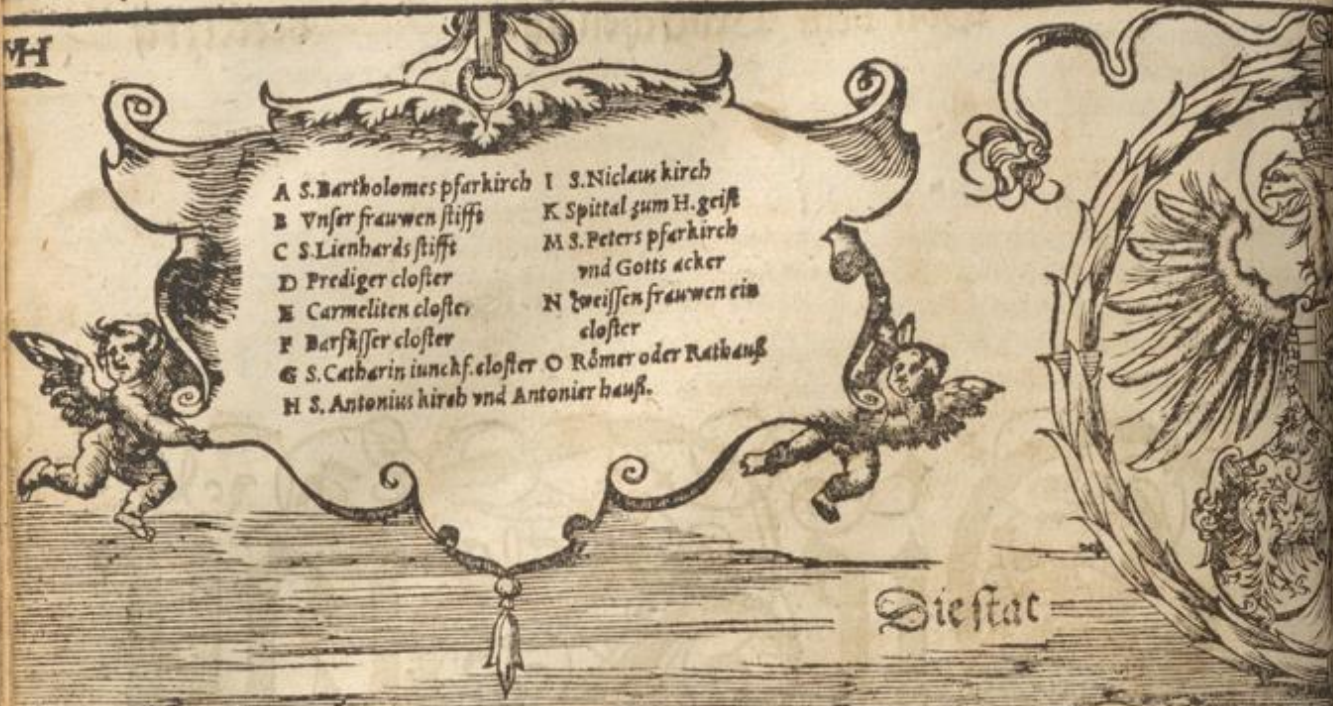 A S.Bartholomes pfarkirch
B Vnser frauwen stifft
C S.Lienhards stifft
D Prediger closter
E Carmeliten closter
F Barfůsser closter
G S.Catharin iunckf.closter
H S.Antonius kirch vnd Antonier hauß.
I S.Niclaus kirch
K Spittal zum H.geist
M S.Peters pfarkirch
vnd Gotts acker
N zweissen frauwen ein
closter
O Rȯmer oder Rathauß
Die stat